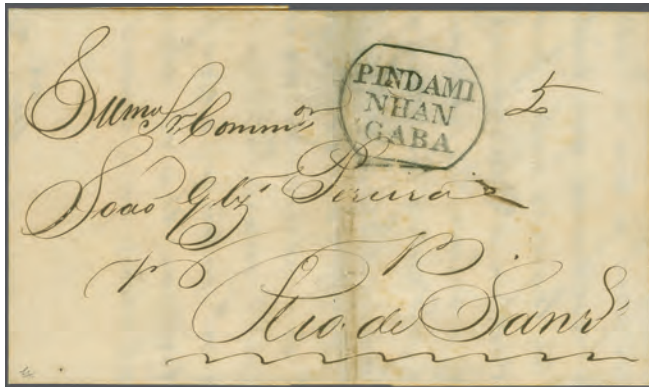 PINDAMI
NHAN
GABA
Illmo Sr. Commor
João Glz' Pereira
Rio de Janro